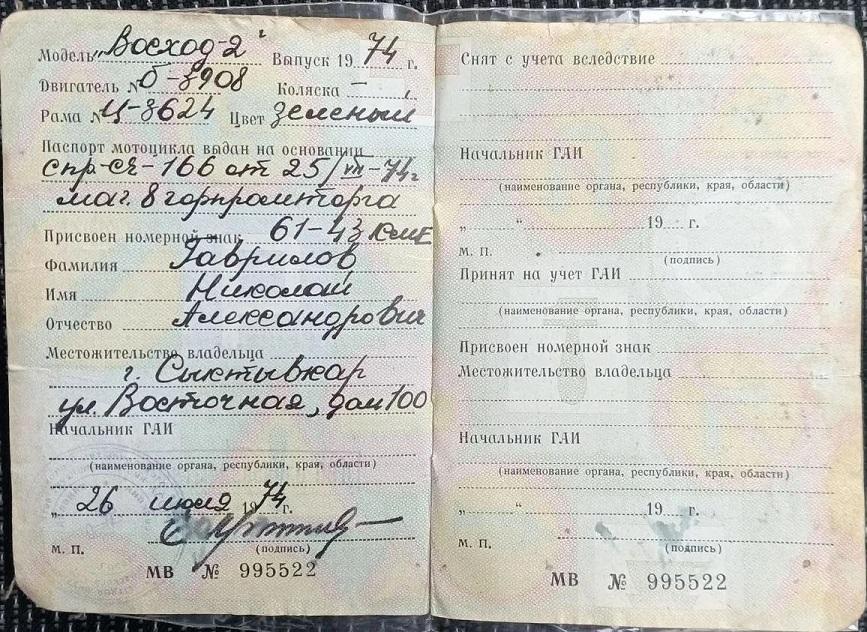 Модель „Восход-2" Выпуск 1974 г.
Двигатель № б-8908 Коляска –
Рама № Ц-8624 Цвет зеленый
Паспорт мотоцикла выдан на основании
спр-сч-166 от 25/VII-74г
маг. 8 горпромторга
Присвоен номерной знак 61-43 КМЕ
Фамилия Гаврилов
Имя Николай
Отчество Александрович
Местожительство владельца
г. Сыктывкар
ул. Восточная, дом 100
Начальник ГАИ
(наименование органа, республики, края, области)
„ 26 июля 1974 г.
М. П. (подпись)
МВ № 995522
Снят с учета вследствие
Начальник ГАИ
(наименование органа, республики, края, области)
„ “ 19 г.
М. П. (подпись)
Принят на учет ГАИ
(наименование органа, республики, края, области)
Присвоен номерной знак
Местожительство владельца
Начальник ГАИ
(наименование органа, республики, края, области)
„ “ 19 г.
М. П. (подпись)
МВ № 995522